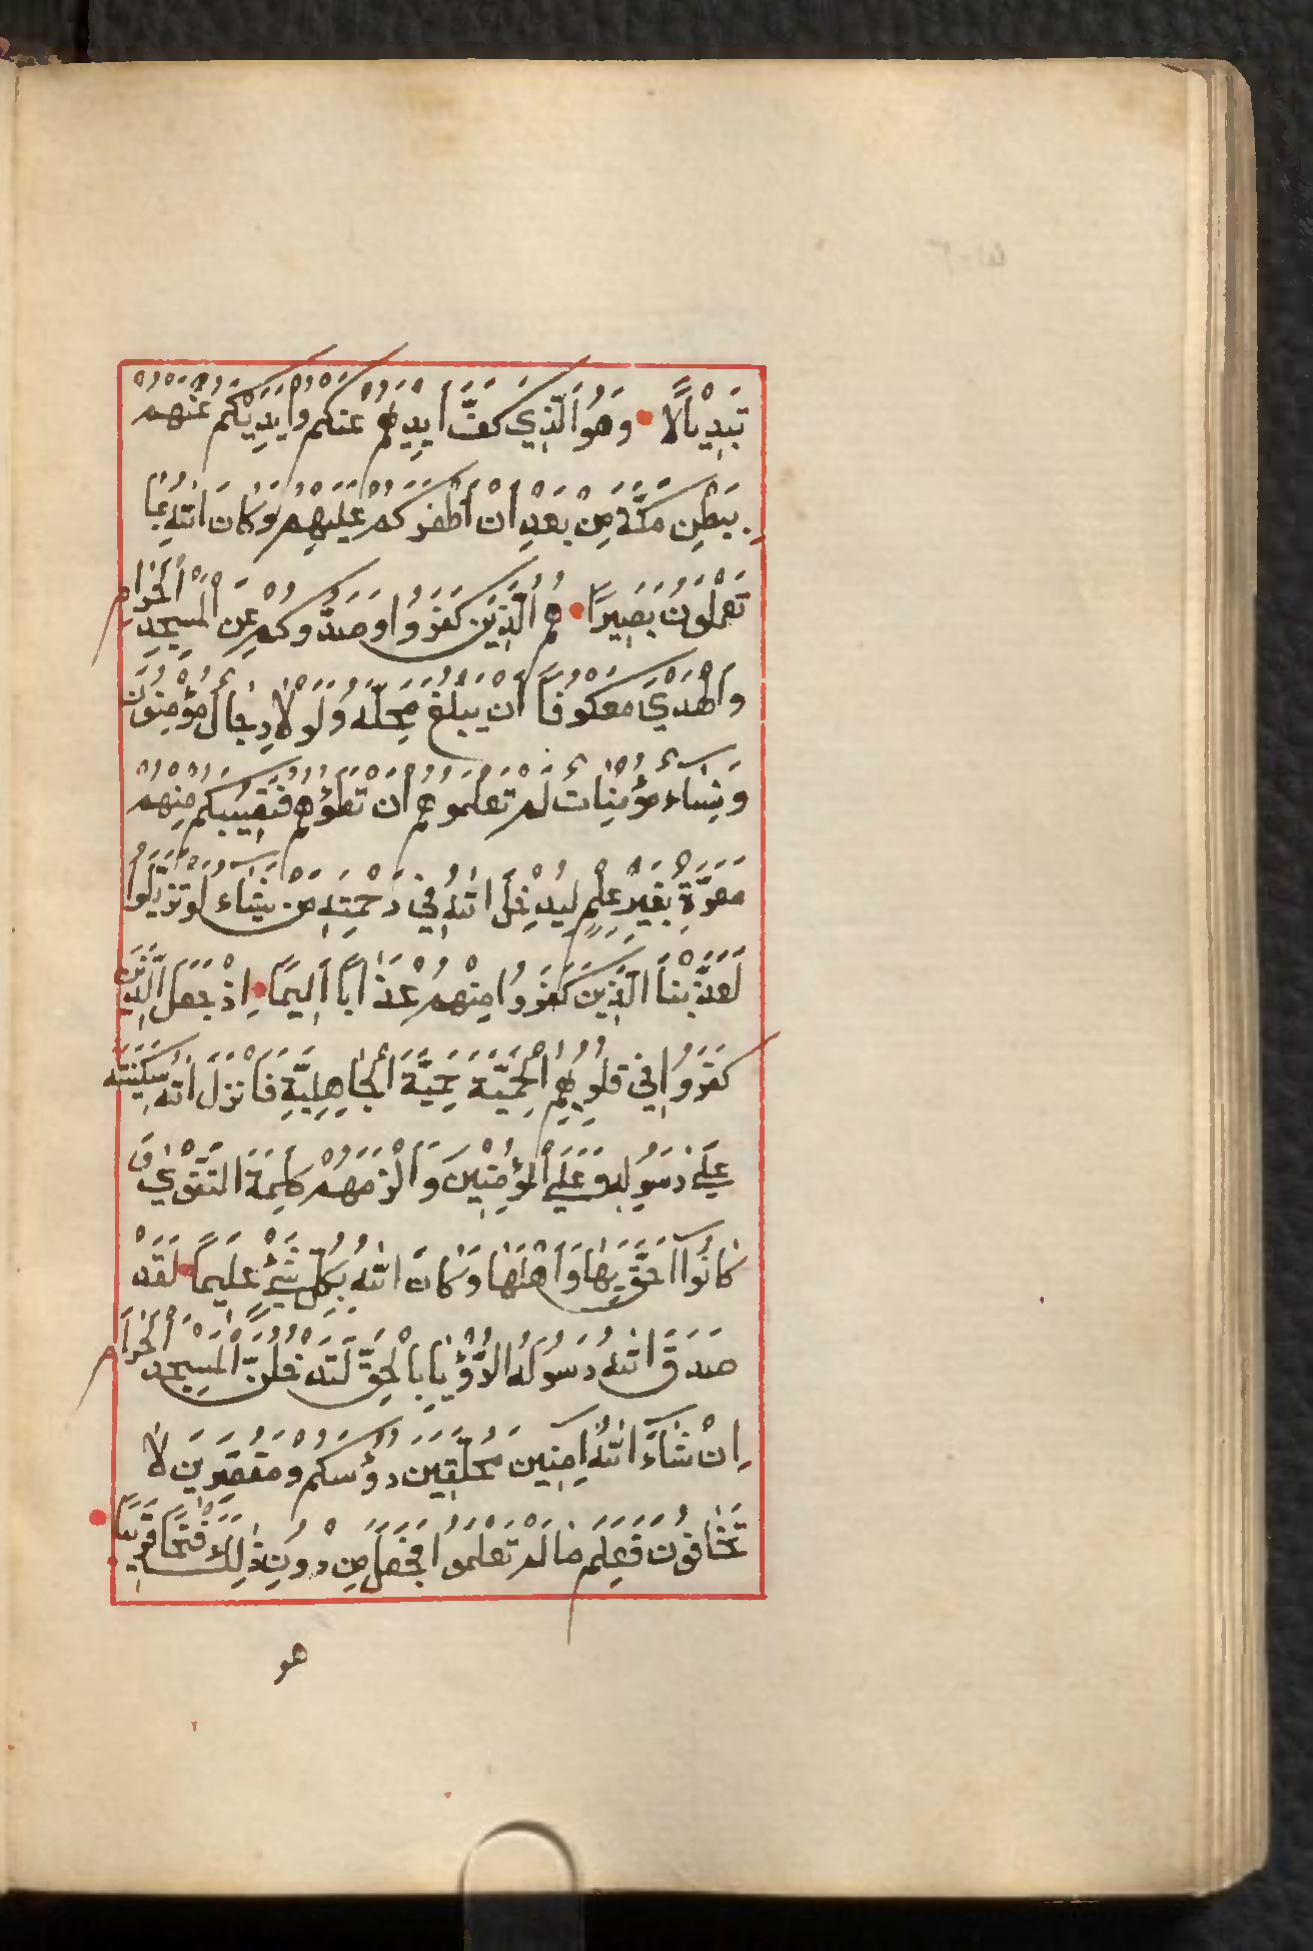 تَبْدِيْلًا وَهُوَ الَّذِي كَفَّ اَيْدِيَهُمْ عَنْكُمْ وَاَيْدِيَكُمْ عَنْهُمْ
بِبَطْنِ مَكَّةَ مِنْ بَعْدِ اَنْ اَظْفَرَكُمْ عَلَيْهِمْ وَكَانَ اللّٰهُ بِمَا
تَعْمَلُوْنَ بَصِيْرًا هُمُ الَّذِيْنَ كَفَرُوْا وَصَدُّوْكُمْ عَنِ الْمَسْجِدِ الْحَرَامِ
وَالْهَدْيَ مَعْكُوْفًا اَنْ يَبْلُغَ مَحِلَّهُ وَلَوْلَا رِجَالٌ مُؤْمِنُوْنَ
وَنِسَاءٌ مُؤْمِنَاتٌ لَمْ تَعْلَمُوْهُمْ اَنْ تَطَؤُهُمْ فَتُصِيْبَكُمْ مِنْهُمْ
مَعَرَّةٌ بِغَيْرِ عِلْمٍ لِيُدْخِلَ اللّٰهُ فِي رَحْمَتِهِ مَنْ يَشَاءُ لَوْ تَزَيَّلُوْا
لَعَذَّبْنَا الَّذِيْنَ كَفَرُوْا مِنْهُمْ عَذَابًا اَلِيْمًا اِذْ جَعَلَ الَّذِيْنَ
كَفَرُوْا فِي قُلُوْبِهِمُ الْحَمِيَّةَ حَمِيَّةَ الْجَاهِلِيَّةِ فَاَنْزَلَ اللّٰهُ سَكِيْنَتَهُ
عَلَى رَسُوْلِهِ وَعَلَى الْمُؤْمِنِيْنَ وَاَلْزَمَهُمْ كَلِمَةَ التَّقْوٰى وَ
كَانُوْا اَحَقَّ بِهَا وَاَهْلَهَا وَكَانَ اللّٰهُ بِكُلِّ شَيْءٍ عَلِيْمًا لَقَدْ
صَدَقَ اللّٰهُ رَسُوْلَهُ الرُّؤْيَا بِالْحَقِّ لَتَدْخُلُنَّ الْمَسْجِدَ الْحَرَامَ
اِنْ شَاءَ اللّٰهُ اٰمِنِيْنَ مُحَلِّقِيْنَ رُؤُسَكُمْ وَمُقَصِّرِيْنَ لَا
تَخَافُوْنَ فَعَلِمَ مَا لَمْ تَعْلَمُوْا فَجَعَلَ مِنْ دُوْنِ ذٰلِكَ فَتْحًا قَرِيْبًا
هو